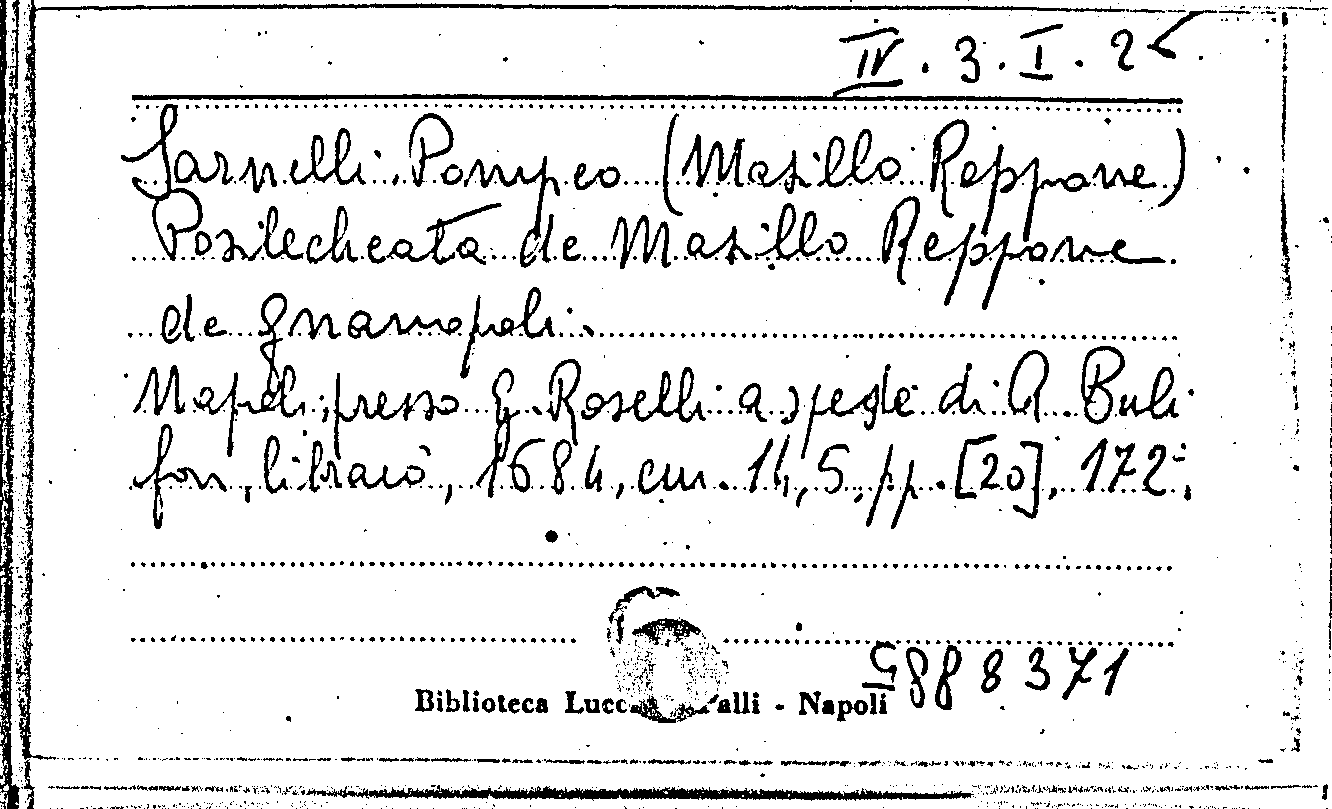 IV. 3. I. 25
Sarnelli Pompeo (Masillo Reppone)
Posilecheata de Masillo Reppone
de Gnanopoli.
Napoli, presso G. Roselli a spese di A. Buli
fon, libraio, 1684, cm. 14,5, pp. [20], 172;
888371
Biblioteca - Napoli